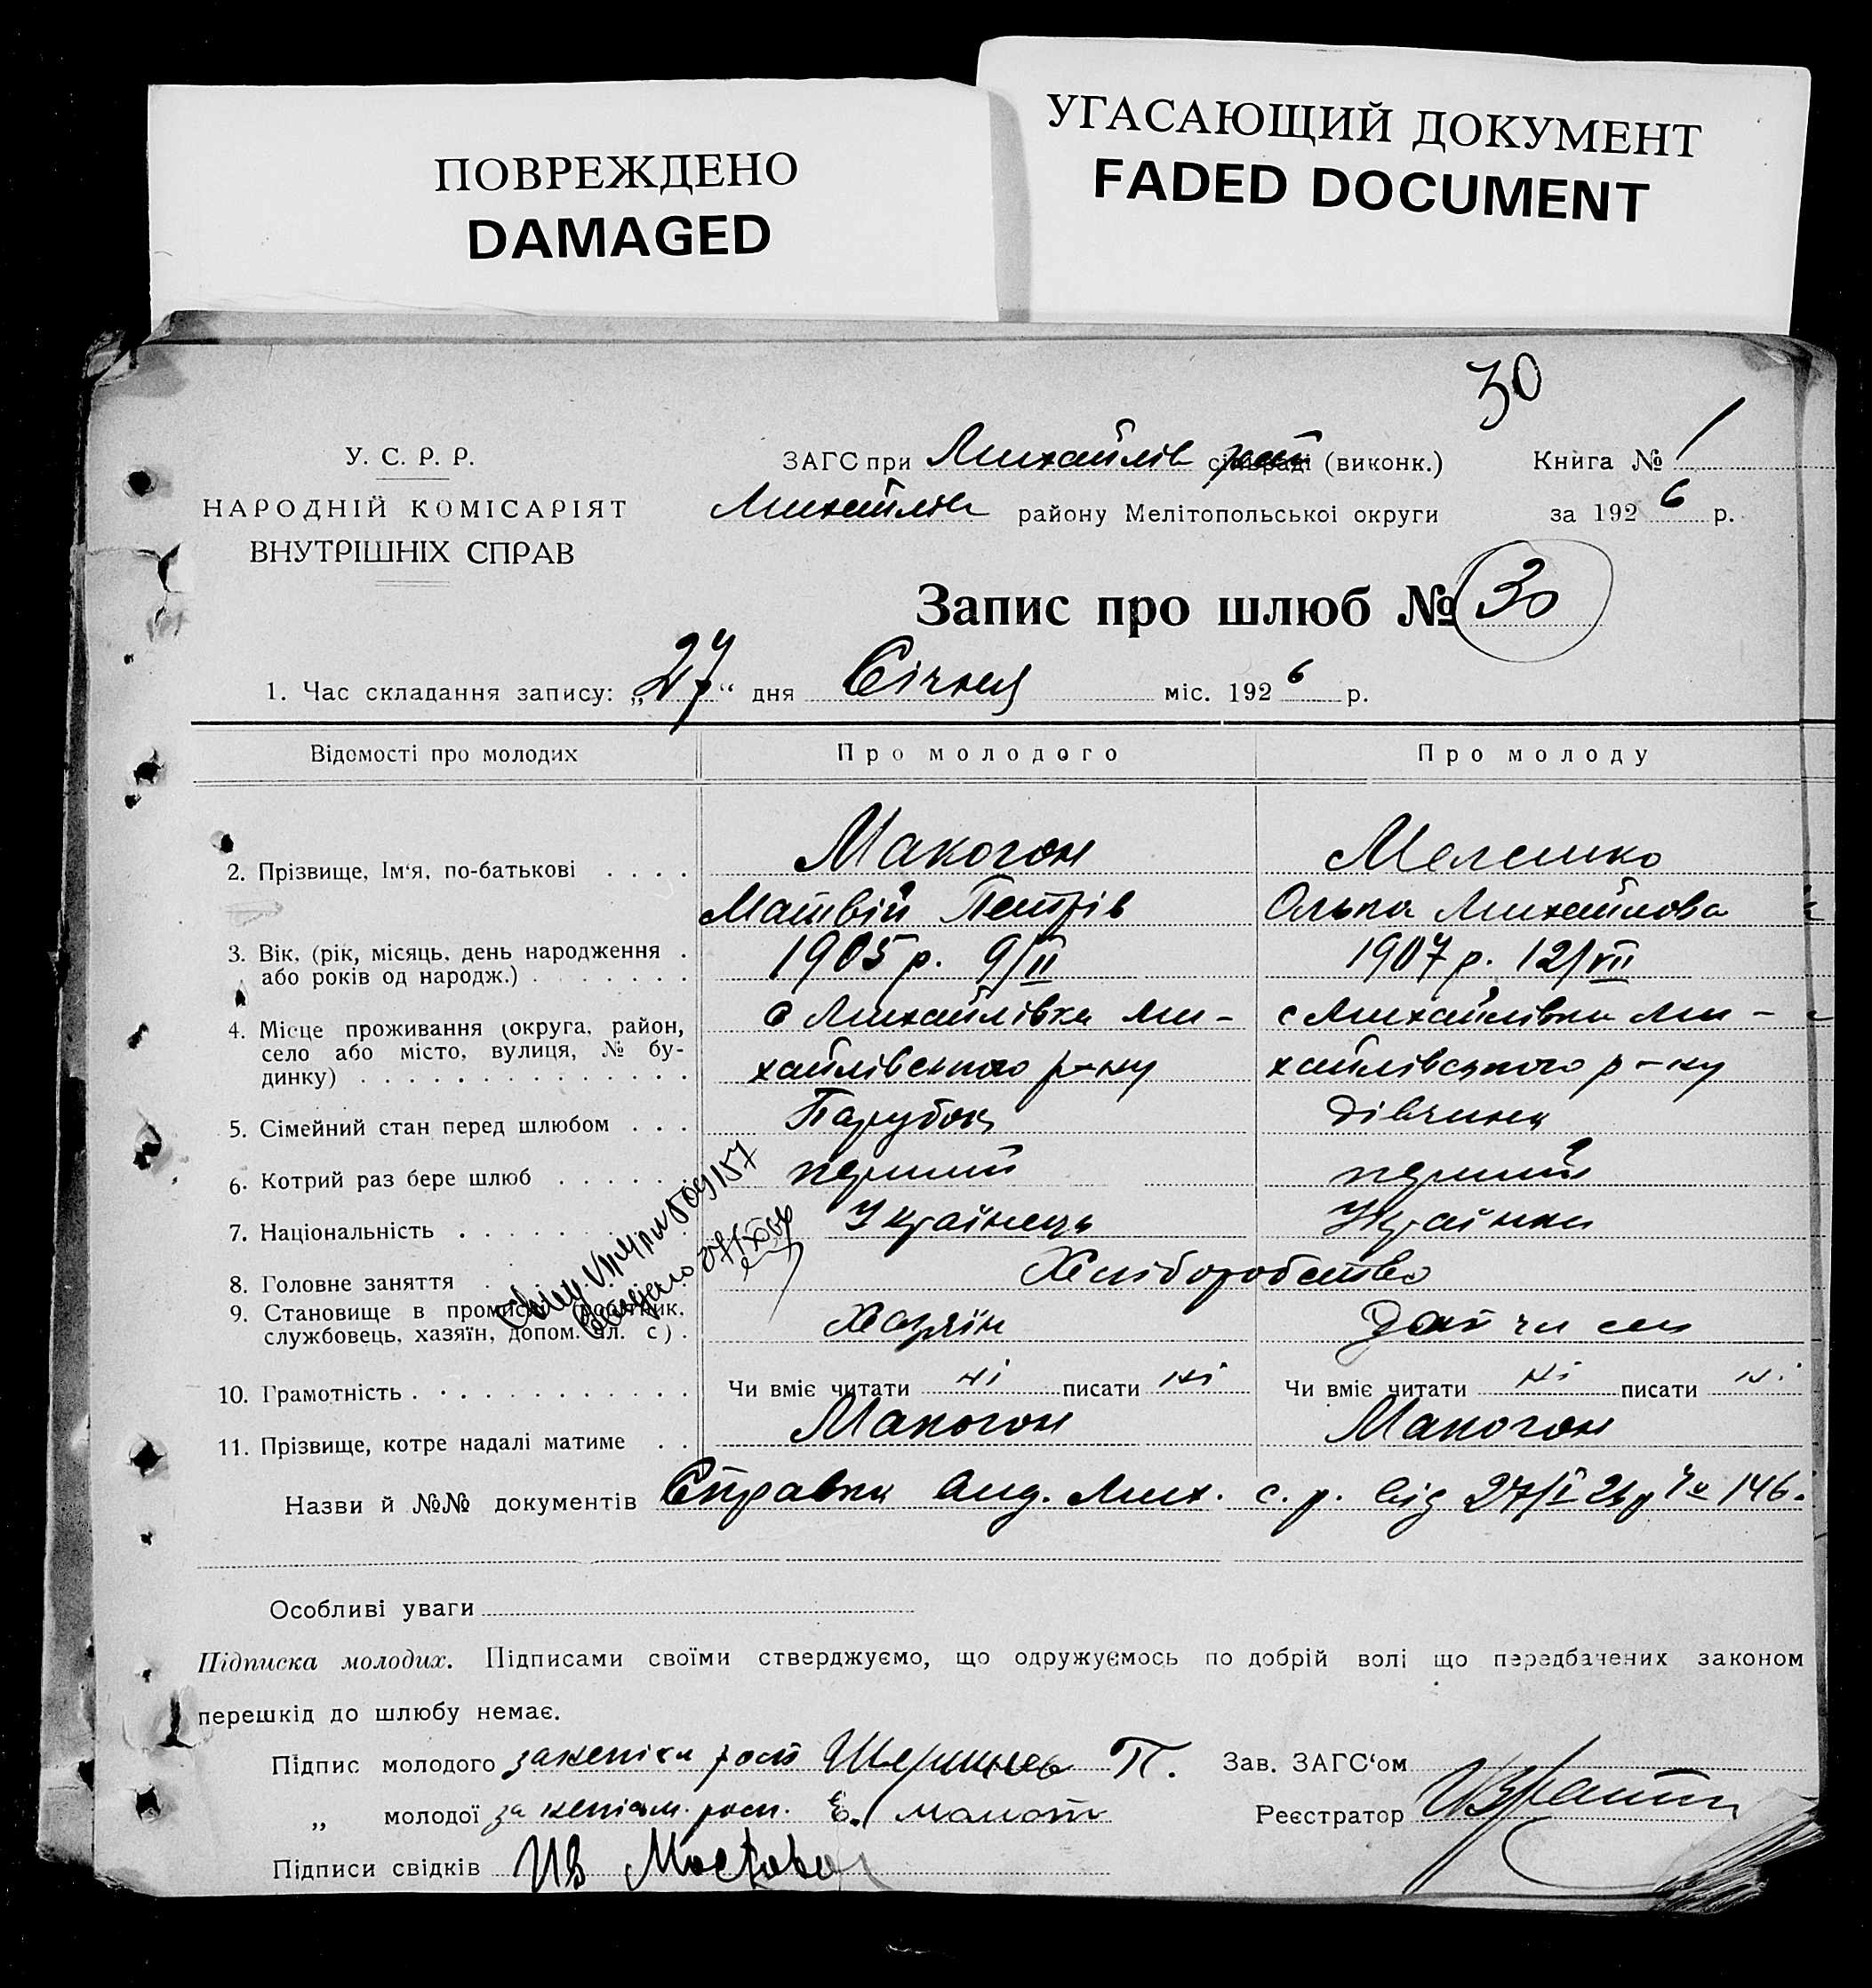 УГАСАЮЩИЙ ДОКУМЕНТ
FADED DOCUMENT
ПОВРЕЖДЕНО
DAMAGED
30
У. С. Р. Р.
НАРОДНІЙ КОМІСАРІЯТ
ВНУТРІШНІХ СПРАВ
ЗАГС при Михайлів сільраді (виконк.) Книга № 1
Михайлів району Мелітопольської округи за 1926 р.
Запис про шлюб № 30
1. Час складання запису: „27“ дня Січня міс. 1926 р.
Відомості про молодих Про молодого Про молоду
2. Прізвище, Ім‘я, по-батькові . . . . Макогон Мелешко
Матвій Петрів Ольга Михайлова
3. Вік, (рік, місяць, день народження . або років од народж.) . . . . . . . 1905 р. 9/II 1907 р. 12/VII
4. Місце проживання (округа, район, с Михайлівка Ми- с Михайлівка Ми-
село або місто, вулиця, № бу-
динку) . . . . . . . . . . . . . . хайлівського р-ну хайлівського р-ну
5. Сімейний стан перед шлюбом . . . Парубок Дівчина
6. Котрий раз бере шлюб . . . . . перший перший
7. Національність . . . . . . . . Українець Українка
8. Головне заняття . Хліборобство
9. Становище в промислі (робітник,
службовець, хазяїн, допом. чл. с) . Хазяїн
10. Грамотність . . . . . . . . . . . . Чи вміє читати ні писати ні Чи вміє читати ні писати ні
11. Прізвище, котре надалі матиме . . Макогон Макогон
Назви й №№ документів Справка вид. Мих. с. р. від 27/I 26 р № 146.
Особливі уваги
Підписка молодих. Підписами своїми стверджуємо, що одружуємось по добрій волі що передбачених законом
перешкід до шлюбу немає.
Підпис молодого П. Зав. ЗАГС‘ом
„ молодої Реєстратор
Підписи свідків Ив Мостовой